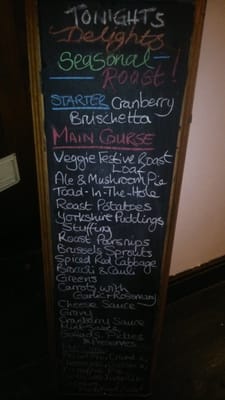 TONIGHTS
Delights
Seasonal
ROAST!
STARTER Cranberry
Bruschetta
MAIN COURSE
Veggie Festive Roast
Loaf
Ale & Mushroom Pie
Toad-In-The-Hole
Roast Potatoes
Yorkshire Puddings
Stuffing
Roast Parsnips
Brussels Sprouts
Spiced Red Cabbage
Broccoli & Cauli
Greens
Carrots with
Garlic & Rosemary
Cheese Sauce
Gravy
Cranberry Sauce
Mint Sauce
Salads, Pickles
& Preserves